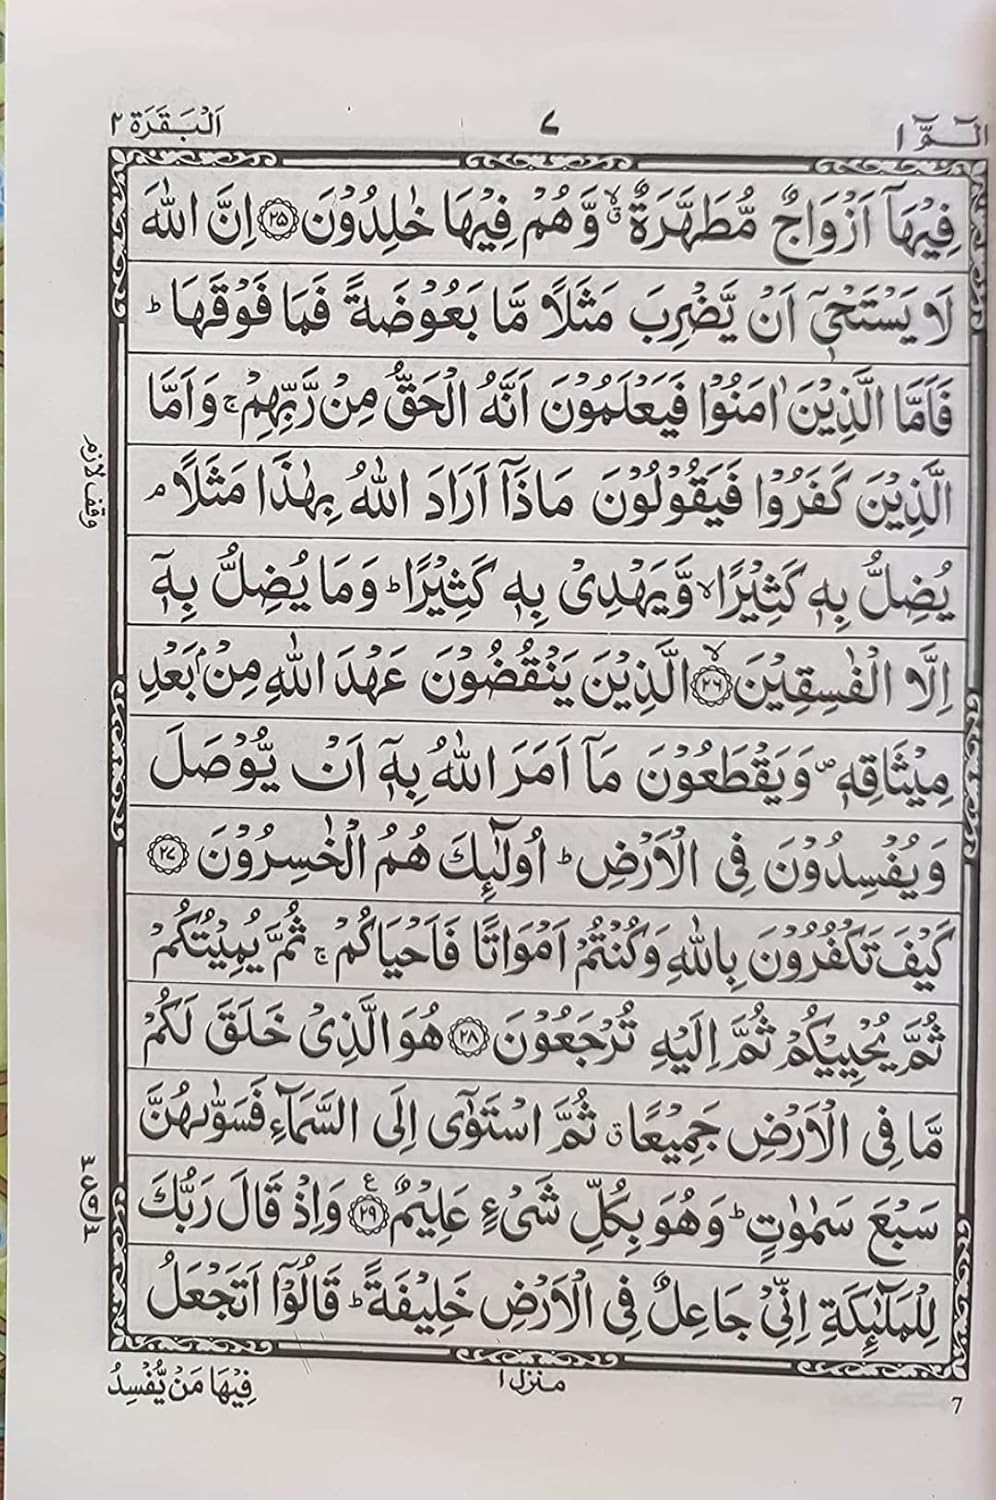 الٓـمّٓ ١ ٧ اَلْبَقَرَة ٢
فِيْهَآ اَزْوَاجٌ مُّطَهَّرَةٌ ۙۗ وَّهُمْ فِيْهَا خٰلِدُوْنَ ۝۲۵ اِنَّ اللّٰهَ
لَا يَسْتَحْيٖٓ اَنْ يَّضْرِبَ مَثَلًا مَّا بَعُوْضَةً فَمَا فَوْقَهَا ؕ
فَاَمَّا الَّذِيْنَ اٰمَنُوْا فَيَعْلَمُوْنَ اَنَّهُ الْحَقُّ مِنْ رَّبِّهِمْ ۚ وَاَمَّا
الَّذِيْنَ كَفَرُوْا فَيَقُوْلُوْنَ مَاذَآ اَرَادَ اللّٰهُ بِهٰذَا مَثَلًا ۘ
وقف لازم
يُضِلُّ بِهٖ كَثِيْرًا ۙ وَّيَهْدِىْ بِهٖ كَثِيْرًا ؕ وَمَا يُضِلُّ بِهٖٓ
اِلَّا الْفٰسِقِيْنَ ۝۲۶ ۙ الَّذِيْنَ يَنْقُضُوْنَ عَهْدَ اللّٰهِ مِنْۢ بَعْدِ
مِيْثَاقِهٖ ۪ وَيَقْطَعُوْنَ مَآ اَمَرَ اللّٰهُ بِهٖٓ اَنْ يُّوْصَلَ
وَيُفْسِدُوْنَ فِى الْاَرْضِ ؕ اُولٰٓئِكَ هُمُ الْخٰسِرُوْنَ ۝۲۷
كَيْفَ تَكْفُرُوْنَ بِاللّٰهِ وَكُنْتُمْ اَمْوَاتًا فَاَحْيَاكُمْ ۚ ثُمَّ يُمِيْتُكُمْ
ثُمَّ يُحْيِيْكُمْ ثُمَّ اِلَيْهِ تُرْجَعُوْنَ ۝۲۸ هُوَ الَّذِىْ خَلَقَ لَكُمْ
مَّا فِى الْاَرْضِ جَمِيْعًا ۗ ثُمَّ اسْتَوٰٓى اِلَى السَّمَآءِ فَسَوّٰىهُنَّ
سَبْعَ سَمٰوٰتٍ ؕ وَهُوَ بِكُلِّ شَىْءٍ عَلِيْمٌ ۝۲۹ ع وَاِذْ قَالَ رَبُّكَ
لِلْمَلٰٓئِكَةِ اِنِّىْ جَاعِلٌ فِى الْاَرْضِ خَلِيْفَةً ؕ قَالُوْٓا اَتَجْعَلُ
منزل ١
فِيْهَا مَنْ يُّفْسِدُ
7